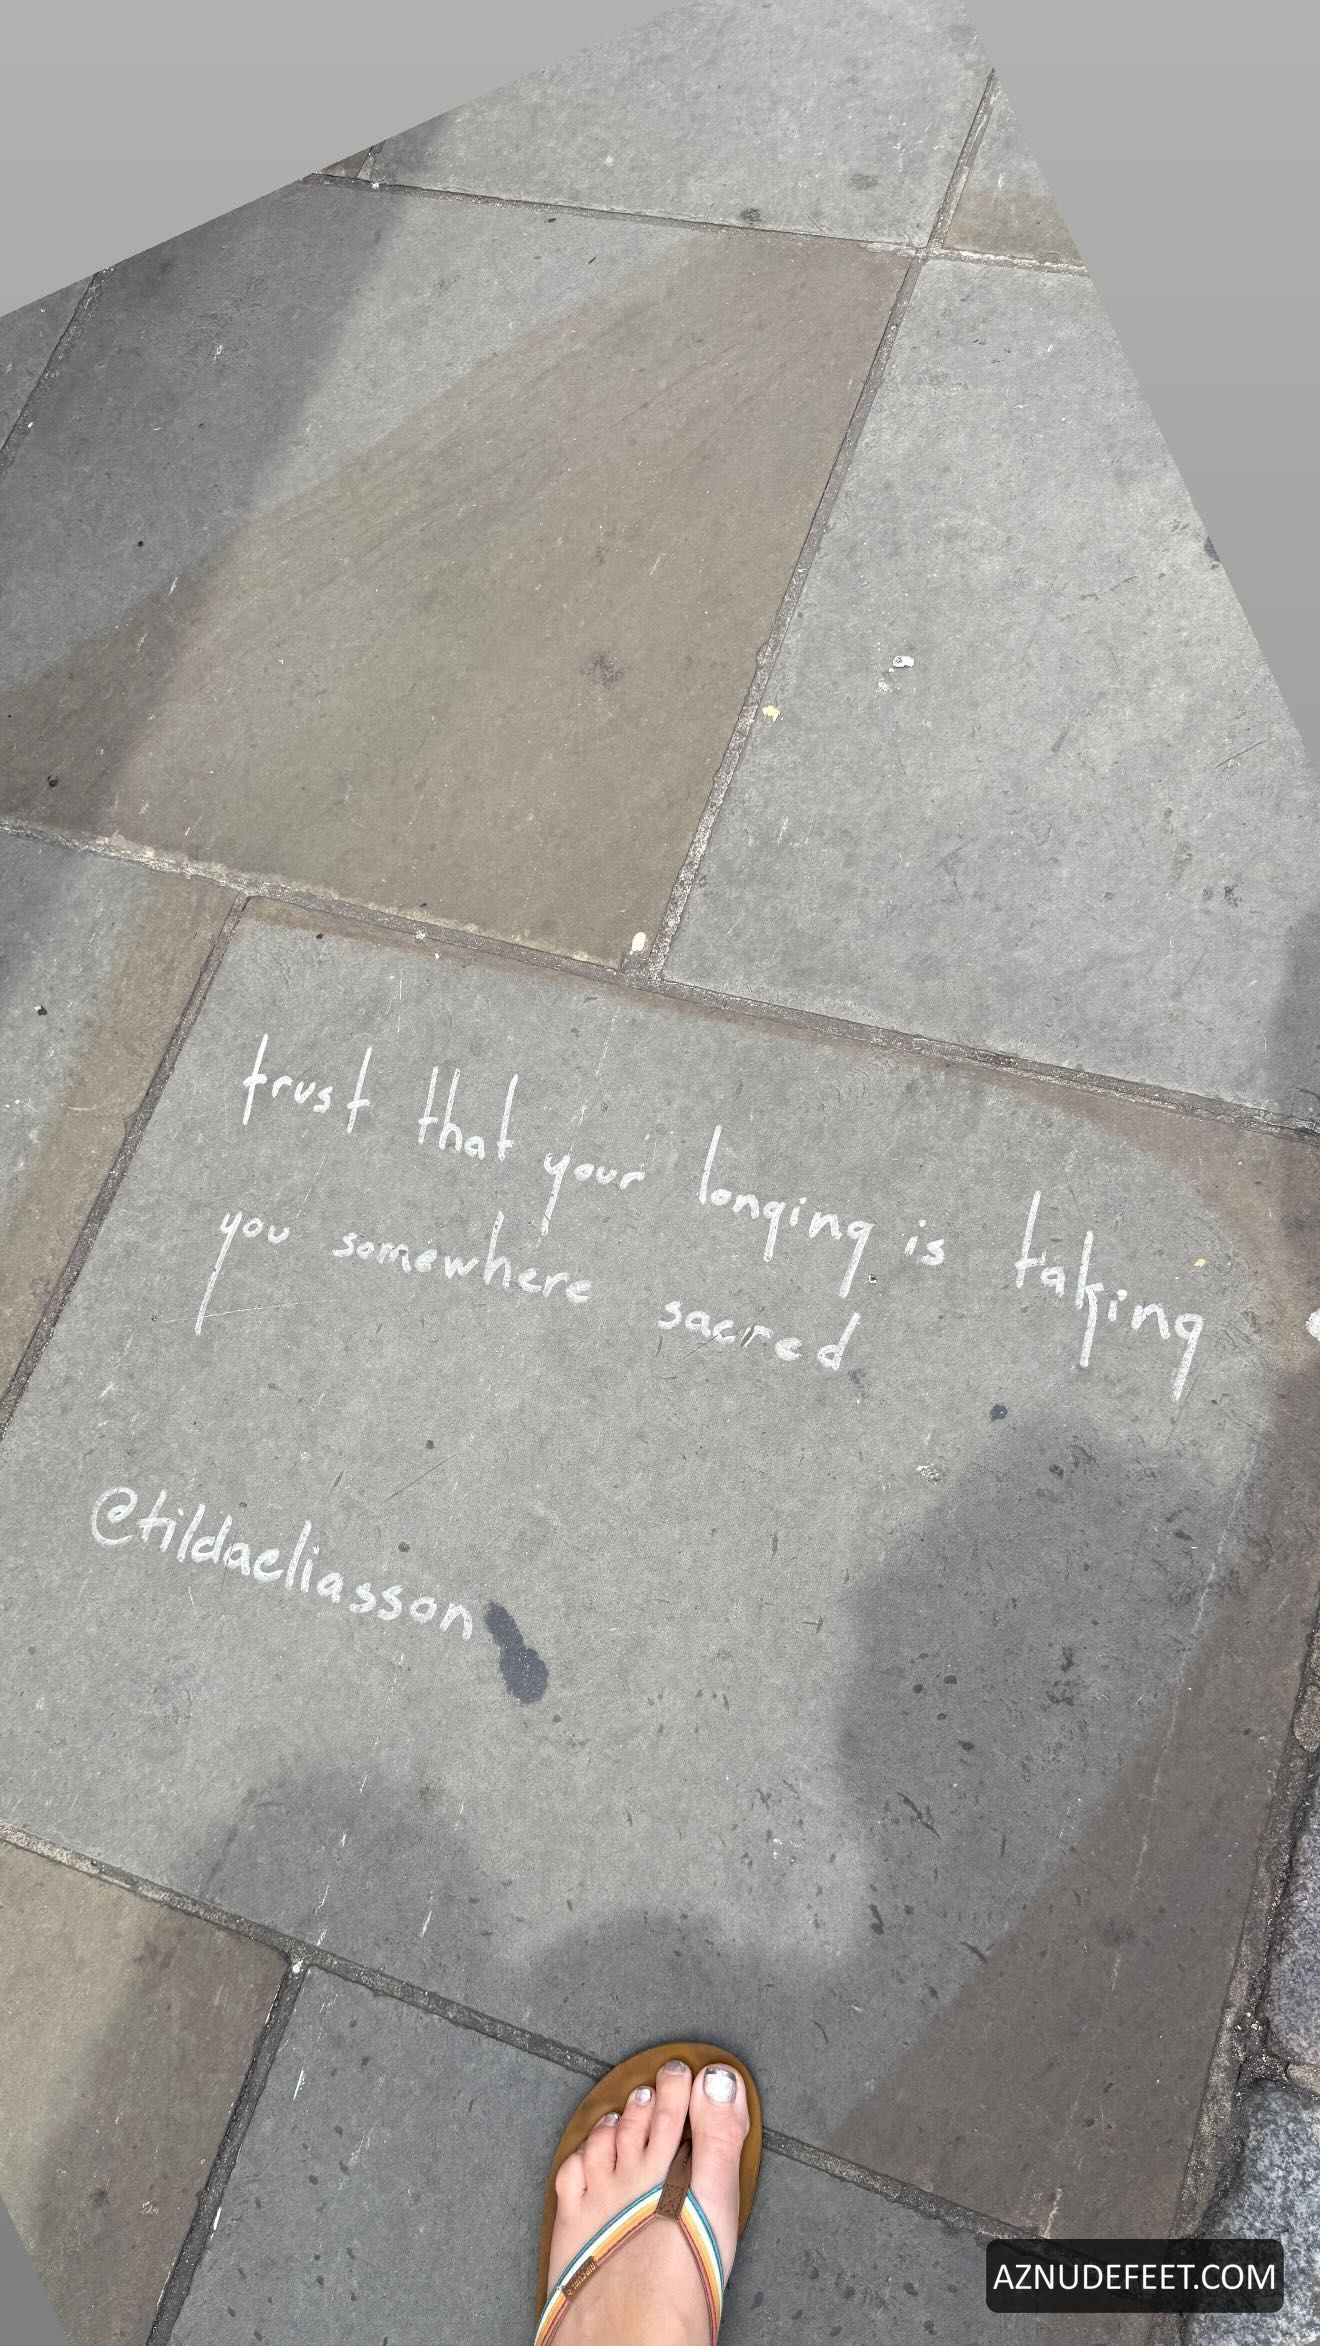 trust that your longing is taking
you somewhere sacred
@tildaeliasson
RIPCURL
AZNUDEFEET.COM